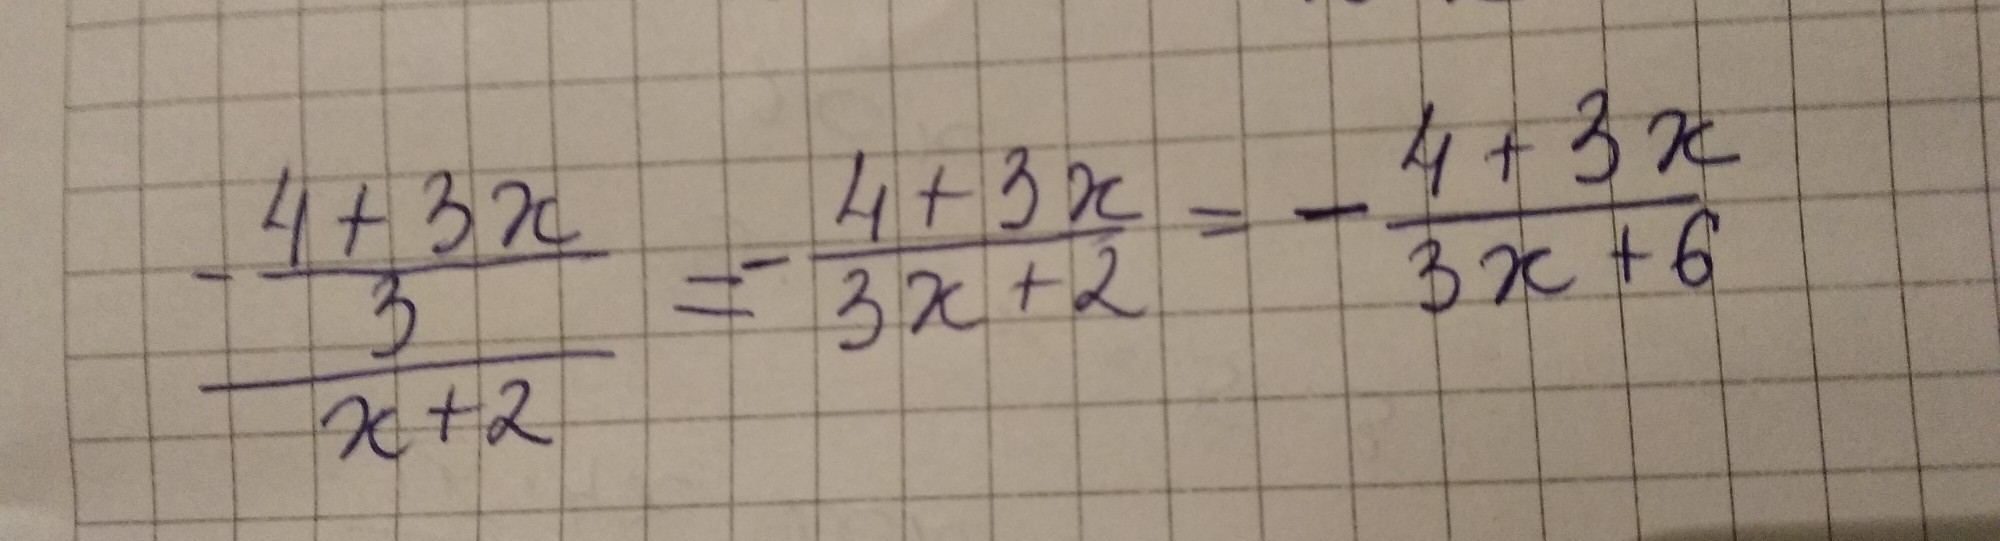 - \frac{\frac{4+3x}{3}}{x+2} = - \frac{4+3x}{3x+2} = - \frac{4+3x}{3x+6}